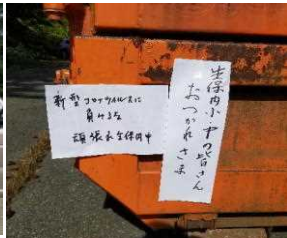 新型コロナウイルスに
負けるな
頑張れ生保内中
生保内小・中の皆さん
おつかれさま